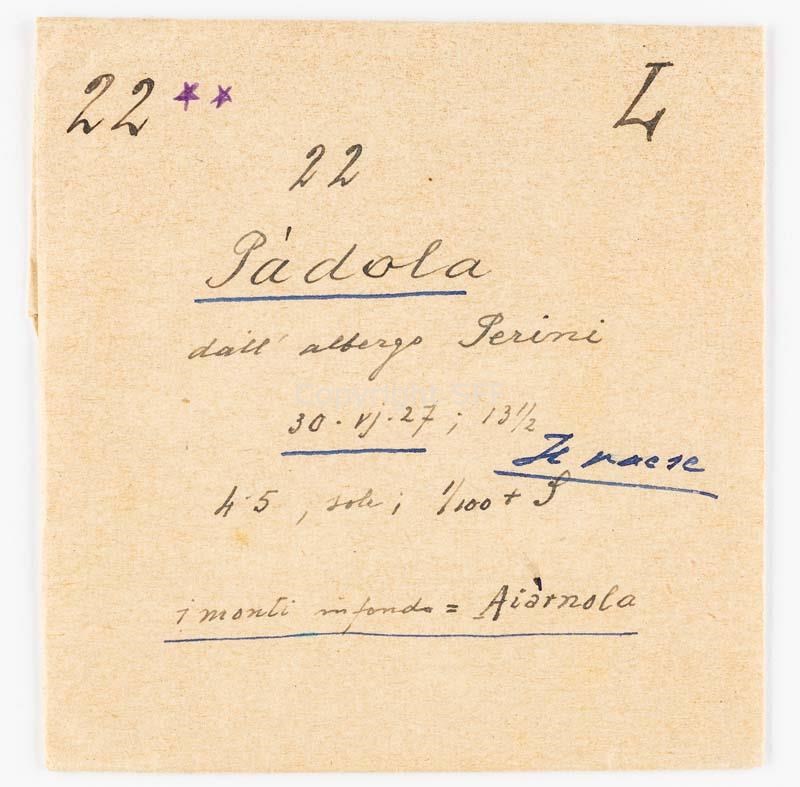 22 ** L
22
Pàdola
dall' albergo Perini
30. vj. 27 ; 13½
Il paese
4.5 , sole ; 1/100 + S
i monti in fondo = Aiàrnola